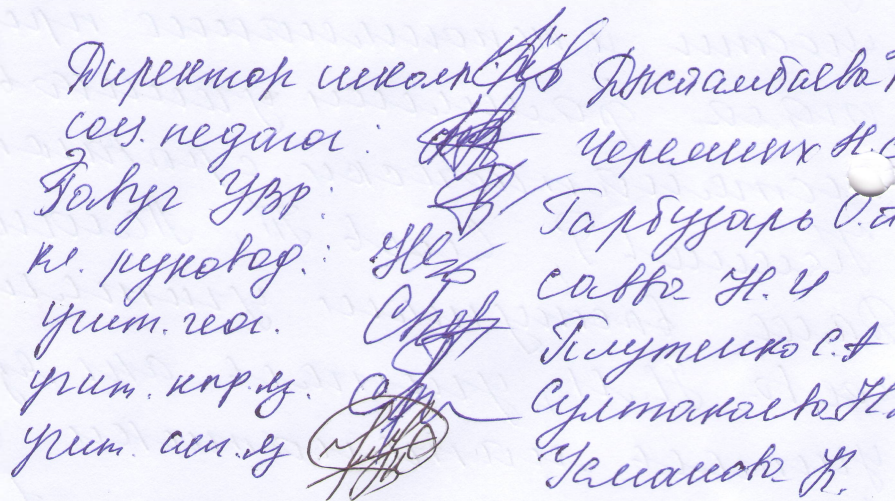 Директор школы: Джетамбаева
соц. педагог: Черемных Н.
Завуч УВР: Гарбузарь О.
кл. руковод.: Савва Н. И
учит. геог. Плутенко С. А
учит. кыр.яз. Султакаева Н.
учит. анг.яз Усманова К.